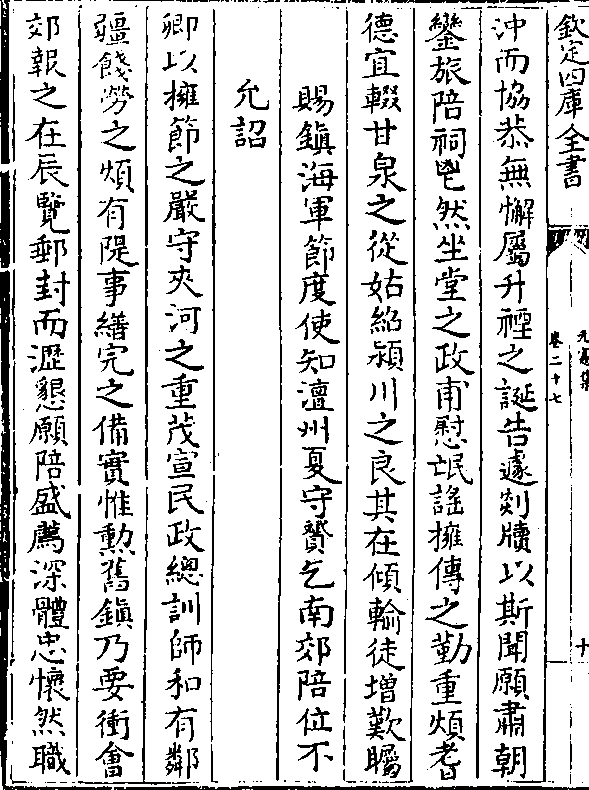 欽定四庫全書
元憲集
卷二十七
十
沖而協恭無懈屬升禋之誕告遽剡牘以斯聞願肅朝
鑾旅陪祠鬯然坐堂之政甫慰氓謠擁傳之勤重煩耆
德宜輟甘泉之從姑紹潁川之良其在傾輪徒增歎矚
賜鎮海軍節度使知澶州夏守贇乞南郊陪位不
允詔
卿以擁節之嚴守夾河之重茂宣民政總訓師和有鄰
疆餞勞之煩有隄事繕完之備實惟勲舊鎮乃要衝會
郊報之在辰覽郵封而瀝懇願陪盛薦深體忠懷然職